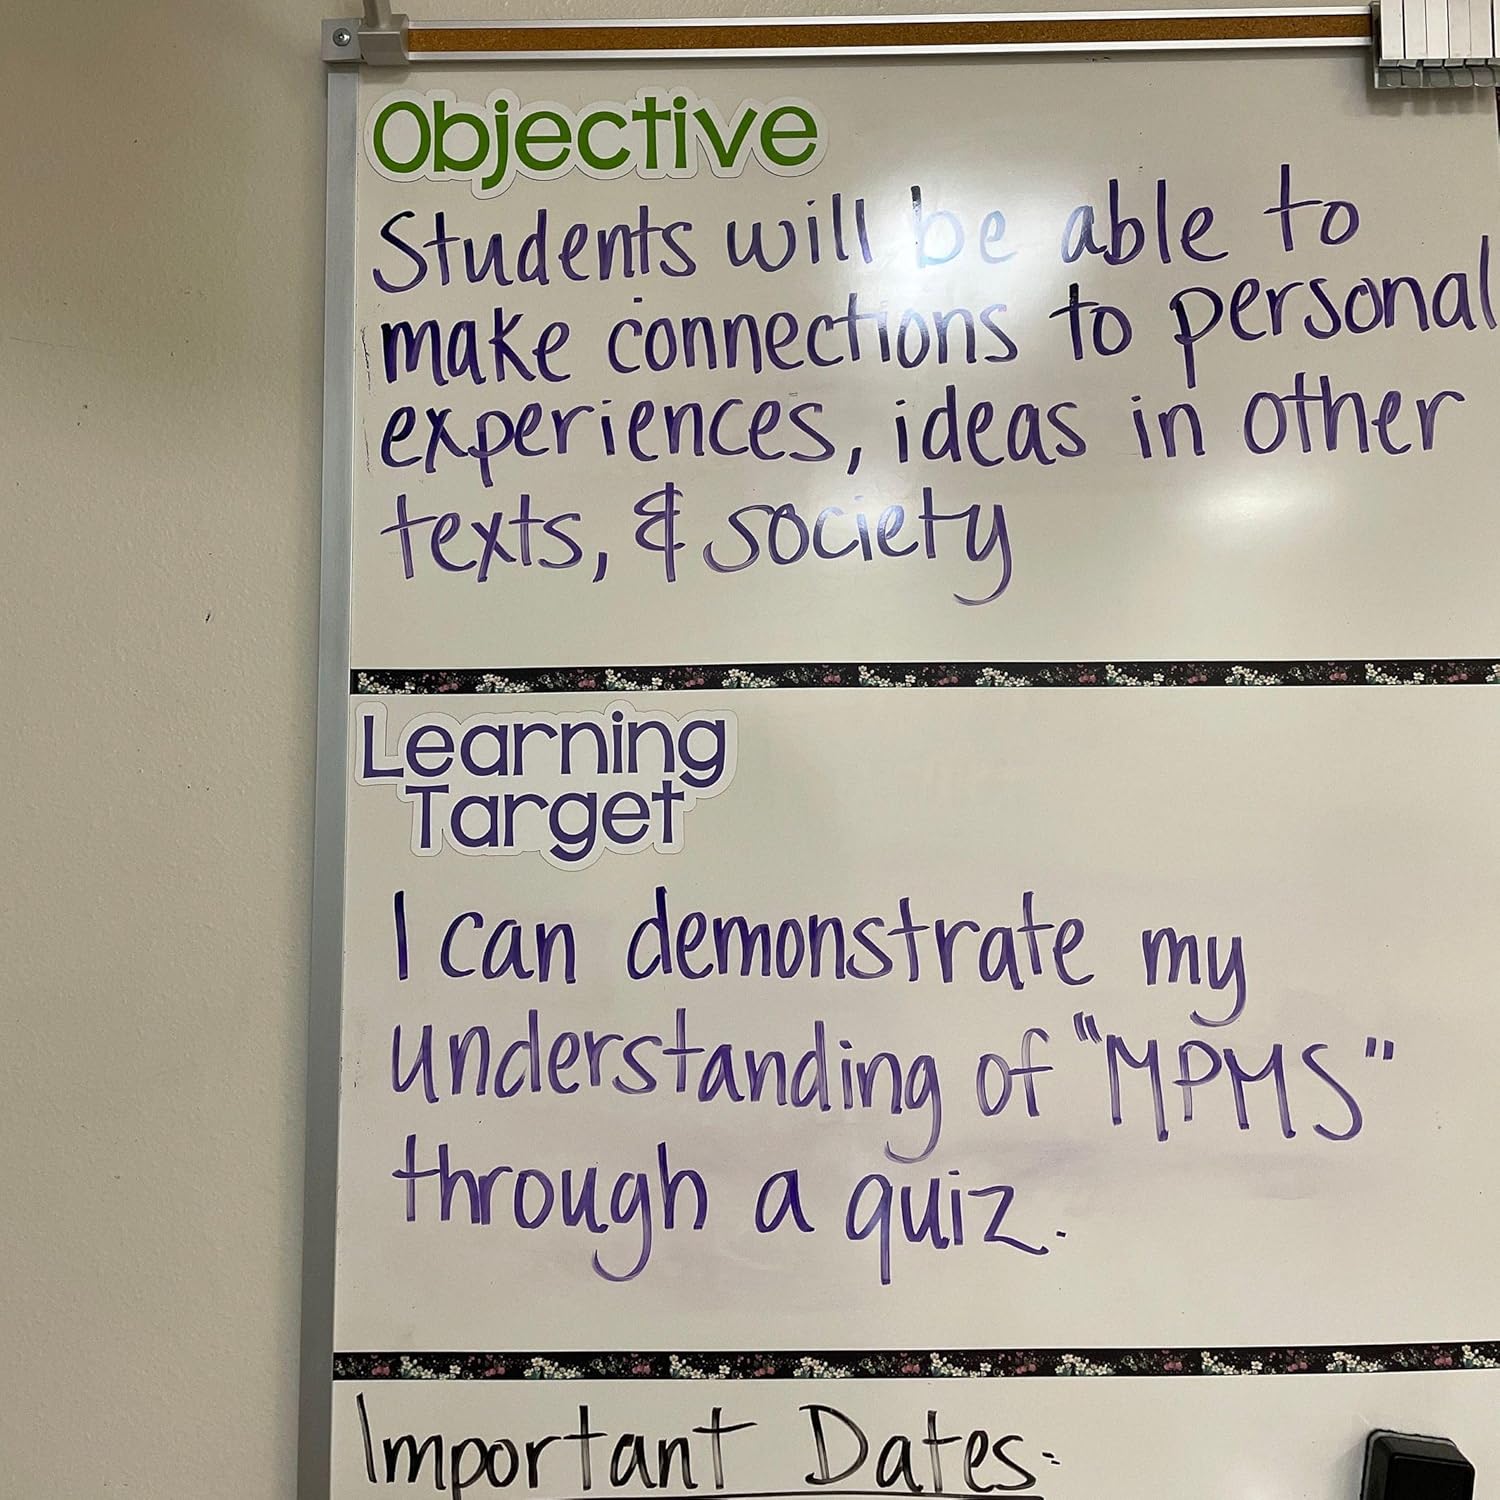 Objective
Students will be able to
make connections to personal
experiences, ideas in other
texts, & society
Learning
Target
I can demonstrate my
understanding of "MPMS"
through a quiz.
Important Dates: